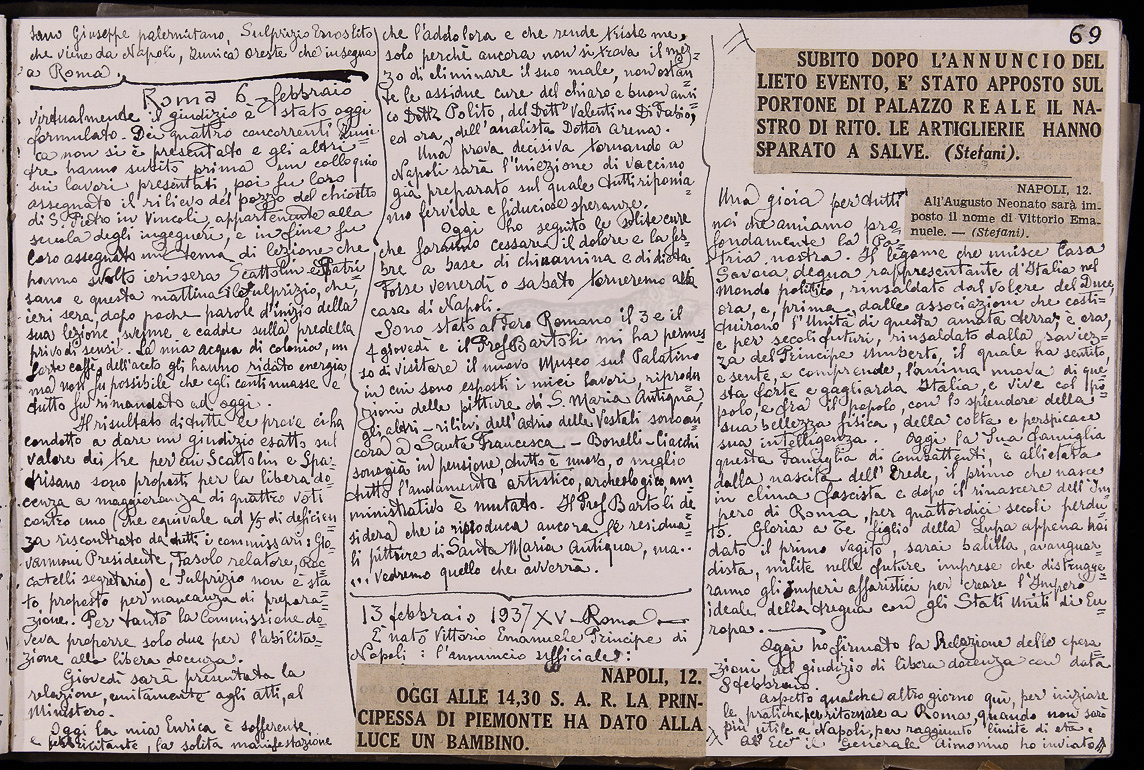 sano Giuseppe palermitano, Sulprizio Ernesto
che viene da Napoli, Zunica Oreste che insegna
a Roma.
Roma 6 febbraio
virtualmente il giudizio è stato oggi
formulato. Dei quattro concorrenti Zuni-
ca non si è presentato e gli altri
tre hanno subito prima un colloquio
sui lavori presentati, poi fu loro
assegnato il rilievo del pozzo del chiostro
di S. Pietro in Vincoli, appartenente alla
scuola degli ingegneri, e in fine fu
loro assegnato un tema di lezione che
hanno svolto ieri sera Scattolin e Patri
sano e questa mattina il Sulprizio, che,
ieri sera, dopo poche parole d'inizio della
sua lezione, svenne e cadde sulla predella
privo di sensi. La mia acqua di colonia, un
forte caffè, dell'aceto gli hanno ridato energia,
ma non fu possibile che egli continuasse e
tutto fu rimandato ad oggi.
Il risultato di tutte le prove ci ha
condotto a dare un giudizio esatto sul
valore dei tre per cui Scattolin e Spa-
trisano sono proposti per la libera do-
cenza a maggioranza di quattro voti
contro uno (che equivale ad 1/5 di deficien-
za riscontrato da tutti i commissari: Gio-
vannoni Presidente, Fasolo relatore, Rac-
catelli segretario) e Sulprizio non è sta-
to proposto per mancanza di prepara-
zione. Per tanto la Commissione do-
veva proporre solo due per l'abilita-
zione alla libera docenza.
Giovedì sarà presentata la
relazione, unitamente agli atti, al
Ministero.
Oggi la mia Enrica è sofferente
e febbricitante, la solita manifestazione
che l'addolora e che rende triste me,
solo perchè ancora non si trova il mez-
zo di eliminare il suo male, nonostan
te le assidue cure del chiaro e buon ami
co Dott. Polito, del Dott. Valentino Di Fabio,
ed ora, dell'analista Dottor Arena.
Una prova decisiva tornando a
Napoli sarà l'iniezione di vaccino
già preparato sul quale tutti riponia-
mo fervide e fiduciose speranze.
Oggi ho seguito le solite cure
che faranno cessare il dolore e la feb-
bre a base di chinamina e di dieta
Forse venerdì o sabato torneremo alla
casa di Napoli.
Sono stato al Foro Romano il 3 e il
4 giovedì e il Prof Bartoli mi ha permes
so di visitare il nuovo Museo sul Palatino
in cui sono esposti i miei lavori, riprodu
zioni delle pitture di S. Maria Antiqua
gli altri - rilievi dell'Atrio delle Vestali sono an
cora a Santa Francesca - Bonelli - Ciacchi
sono già in pensione, tutto è nuovo, o meglio
tutto l'andamento artistico, archeologico am
ministrativo è mutato. Il Prof Bartoli de-
sidera che io riproduca ancora le residua-
li pitture di Santa Maria Antiqua, ma..
... Vedremo quello che avverrà.
13 febbraio 1937 XV - Roma
È nato Vittorio Emanuele Principe di
Napoli: l'annuncio ufficiale:
NAPOLI, 12.
OGGI ALLE 14,30 S. A. R. LA PRIN-
CIPESSA DI PIEMONTE HA DATO ALLA
LUCE UN BAMBINO.
69
SUBITO DOPO L'ANNUNCIO DEL
LIETO EVENTO, E' STATO APPOSTO SUL
PORTONE DI PALAZZO REALE IL NA-
STRO DI RITO. LE ARTIGLIERIE HANNO
SPARATO A SALVE. (Stefani).
NAPOLI, 12.
All'Augusto Neonato sarà im-
posto il nome di Vittorio Ema-
nuele. — (Stefani).
Una gioia per tutti
noi che amiamo pro-
fondamente la Pa-
tria nostra. Il legame che unisce Casa
Savoia, degna rappresentante d'Italia nel
mondo politico, rinsaldato dal volere del Duce,
ora, e, prima, dalle associazioni che costi-
tuirono l'Unità di questa amata terra, è ora,
e per secoli futuri, rinsaldato dalla saviez-
za del Principe Umberto, il quale ha sentito,
e sente, e comprende, l'anima nuova di que-
sta forte e gagliarda Italia, e vive col po-
polo, e fra il popolo, con lo splendore della
sua bellezza fisica, della colta e perspicace
sua intelligenza. Oggi la Sua famiglia
questa Famiglia di combattenti, è allietata
dalla nascita dell'Erede, il primo che nasce
in clima fascista e dopo il rinascere dell'Im-
pero di Roma, per quattordici secoli perdu-
to. Gloria a Te figlio della Lupa appena hai
dato il primo vagito, sarai balilla, avanguar-
dista, milite nelle future imprese che distrugge-
ranno gli imperi affaristici per creare l'Impero
ideale della tregua con gli Stati Uniti di Eu-
ropa.
Oggi ho firmato la Relazione delle opera-
zioni del giudizio di libera docenza con data
8 febbraio
Aspetto qualche altro giorno qui, per iniziare
le pratiche per ritornare a Roma, quando non sarò
più utile a Napoli, per raggiunto limite di età.
A S. Ecc. il Generale Dimommo ho inviato